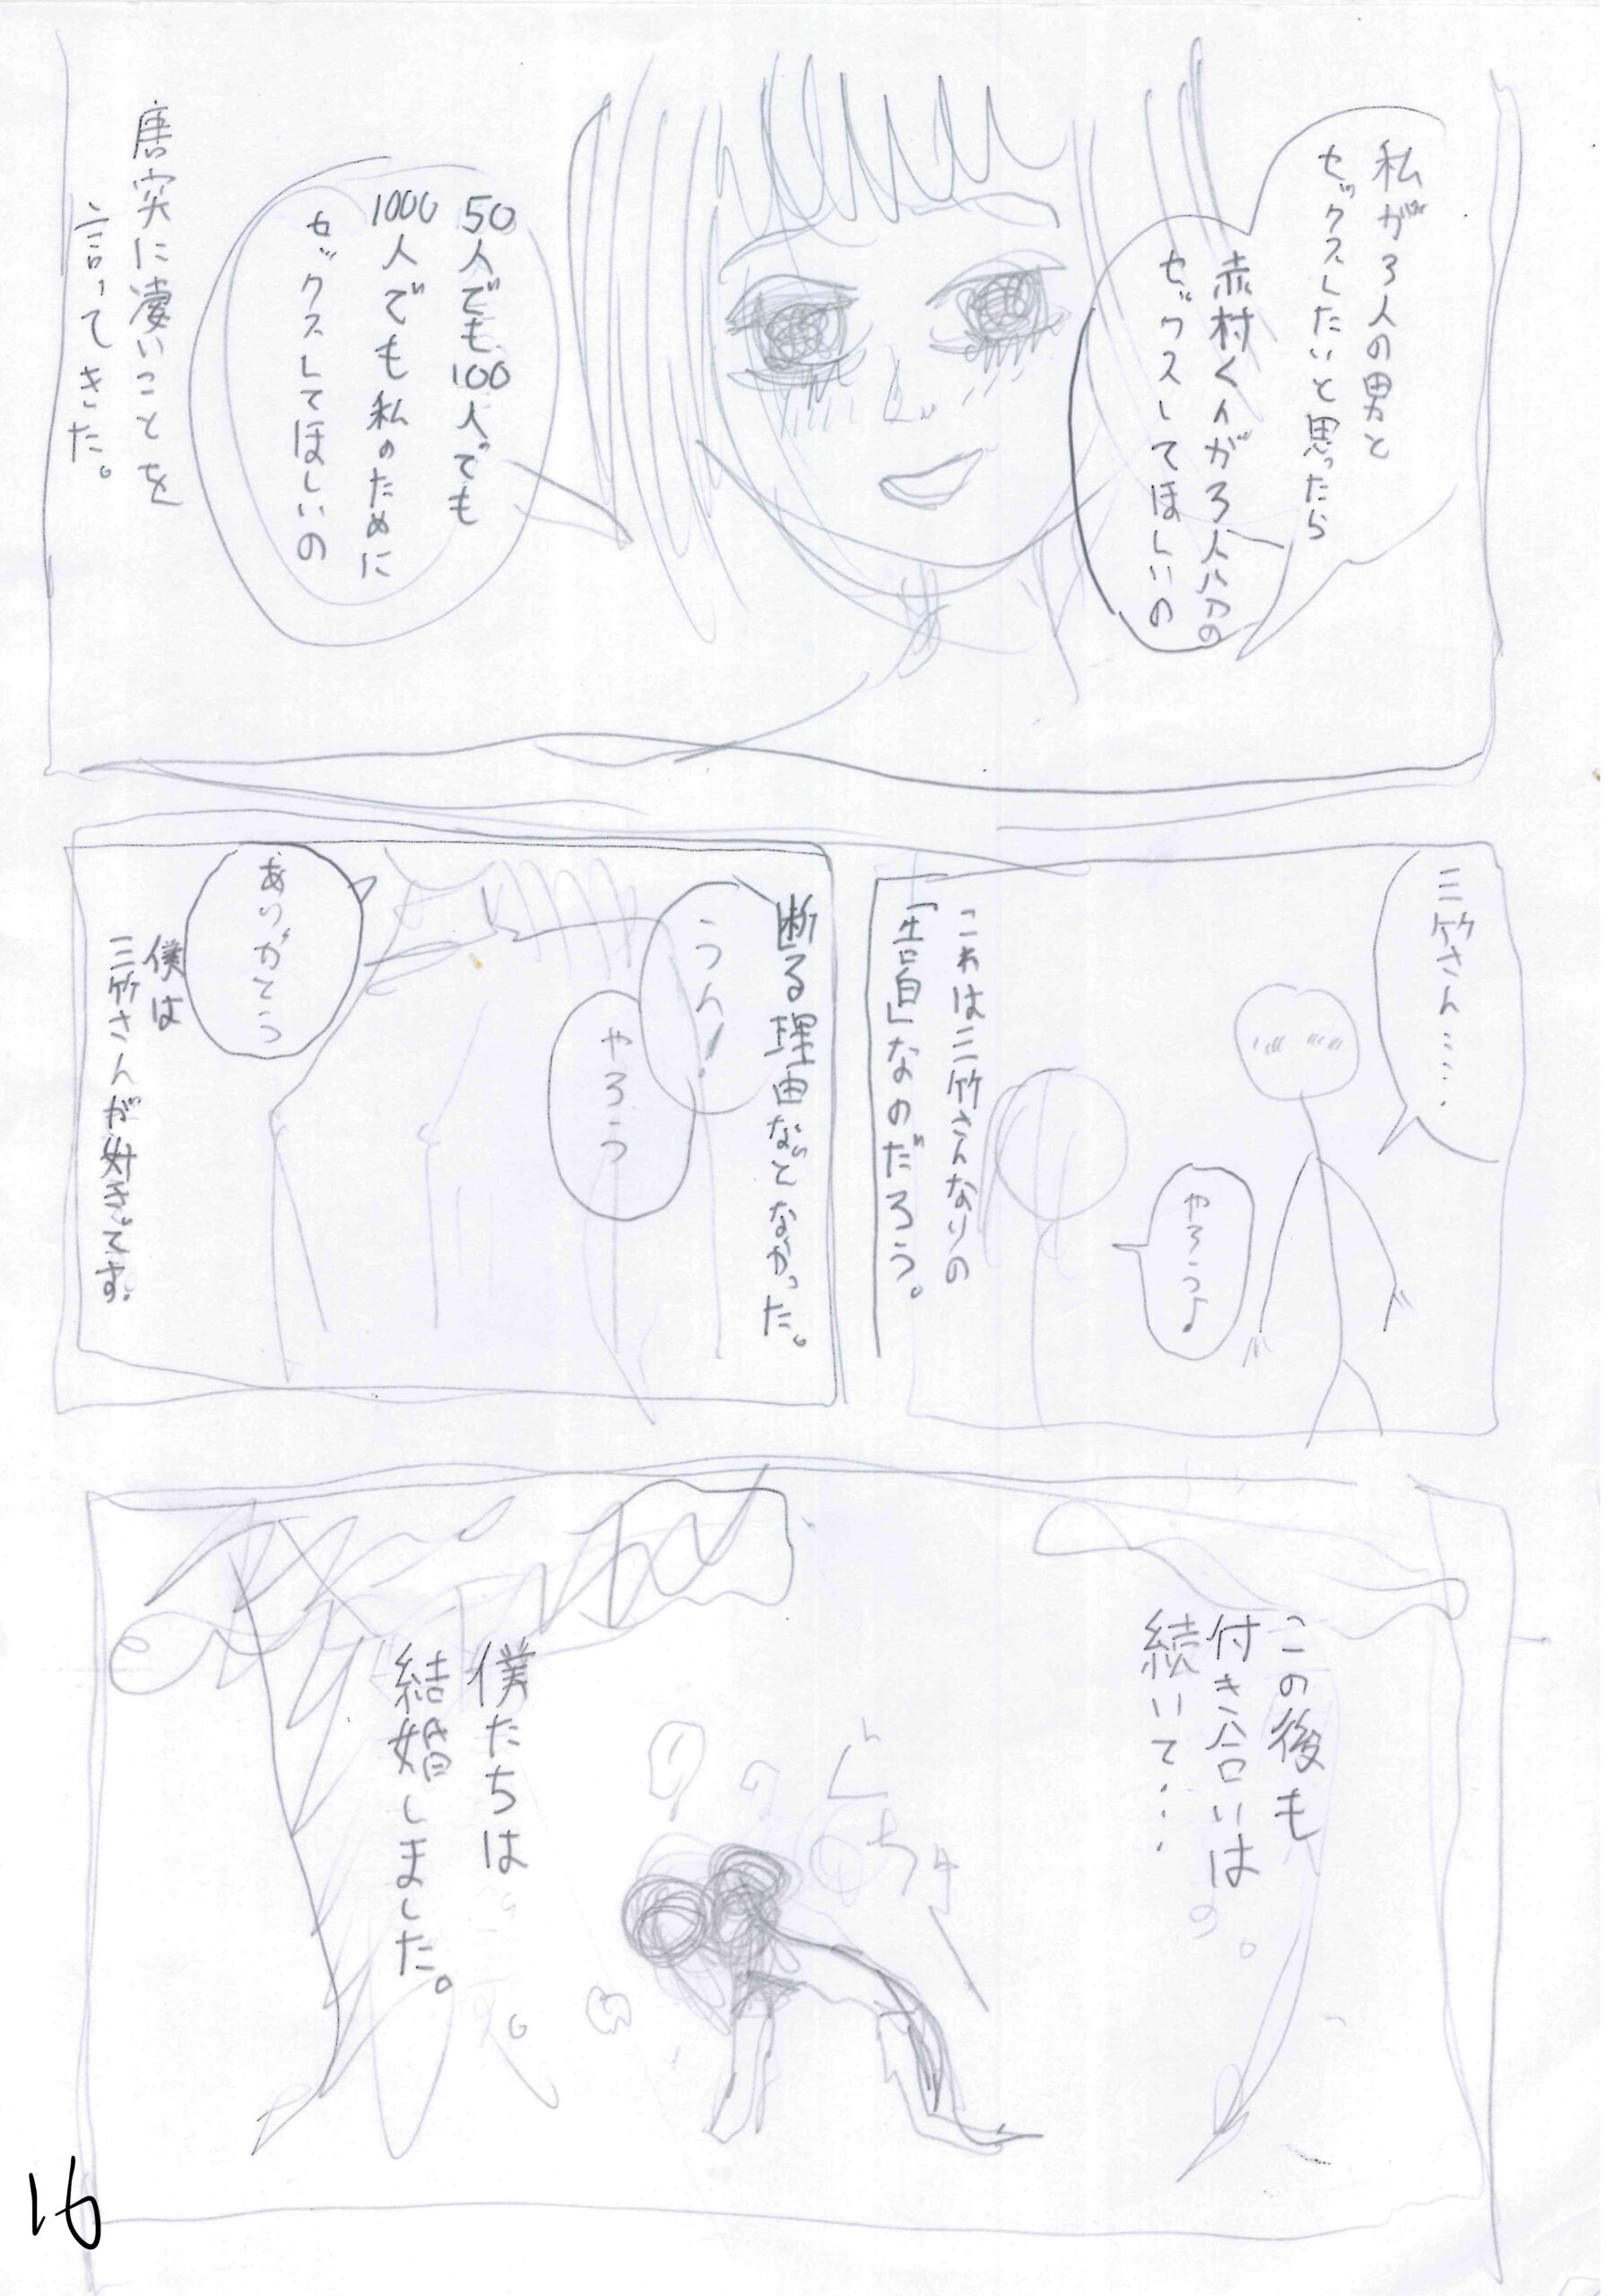 私が3人の男と
セックスしたいと思ったら
赤村くんが3人分の
セックスしてほしいの
50人でも100人でも
1000人でも私のために
セックスしてほしいの
唐突に凄いことを
言ってきた。
三竹さん……
やろう♪
これは三竹さんなりの
「告白」なのだろう。
断る理由などなかった。
うん!
やろう
ありがとう
僕は
三竹さんが好きです。
この後も
付き合いは
続いて…
ぐちゃ
僕たちは
結婚しました。
16